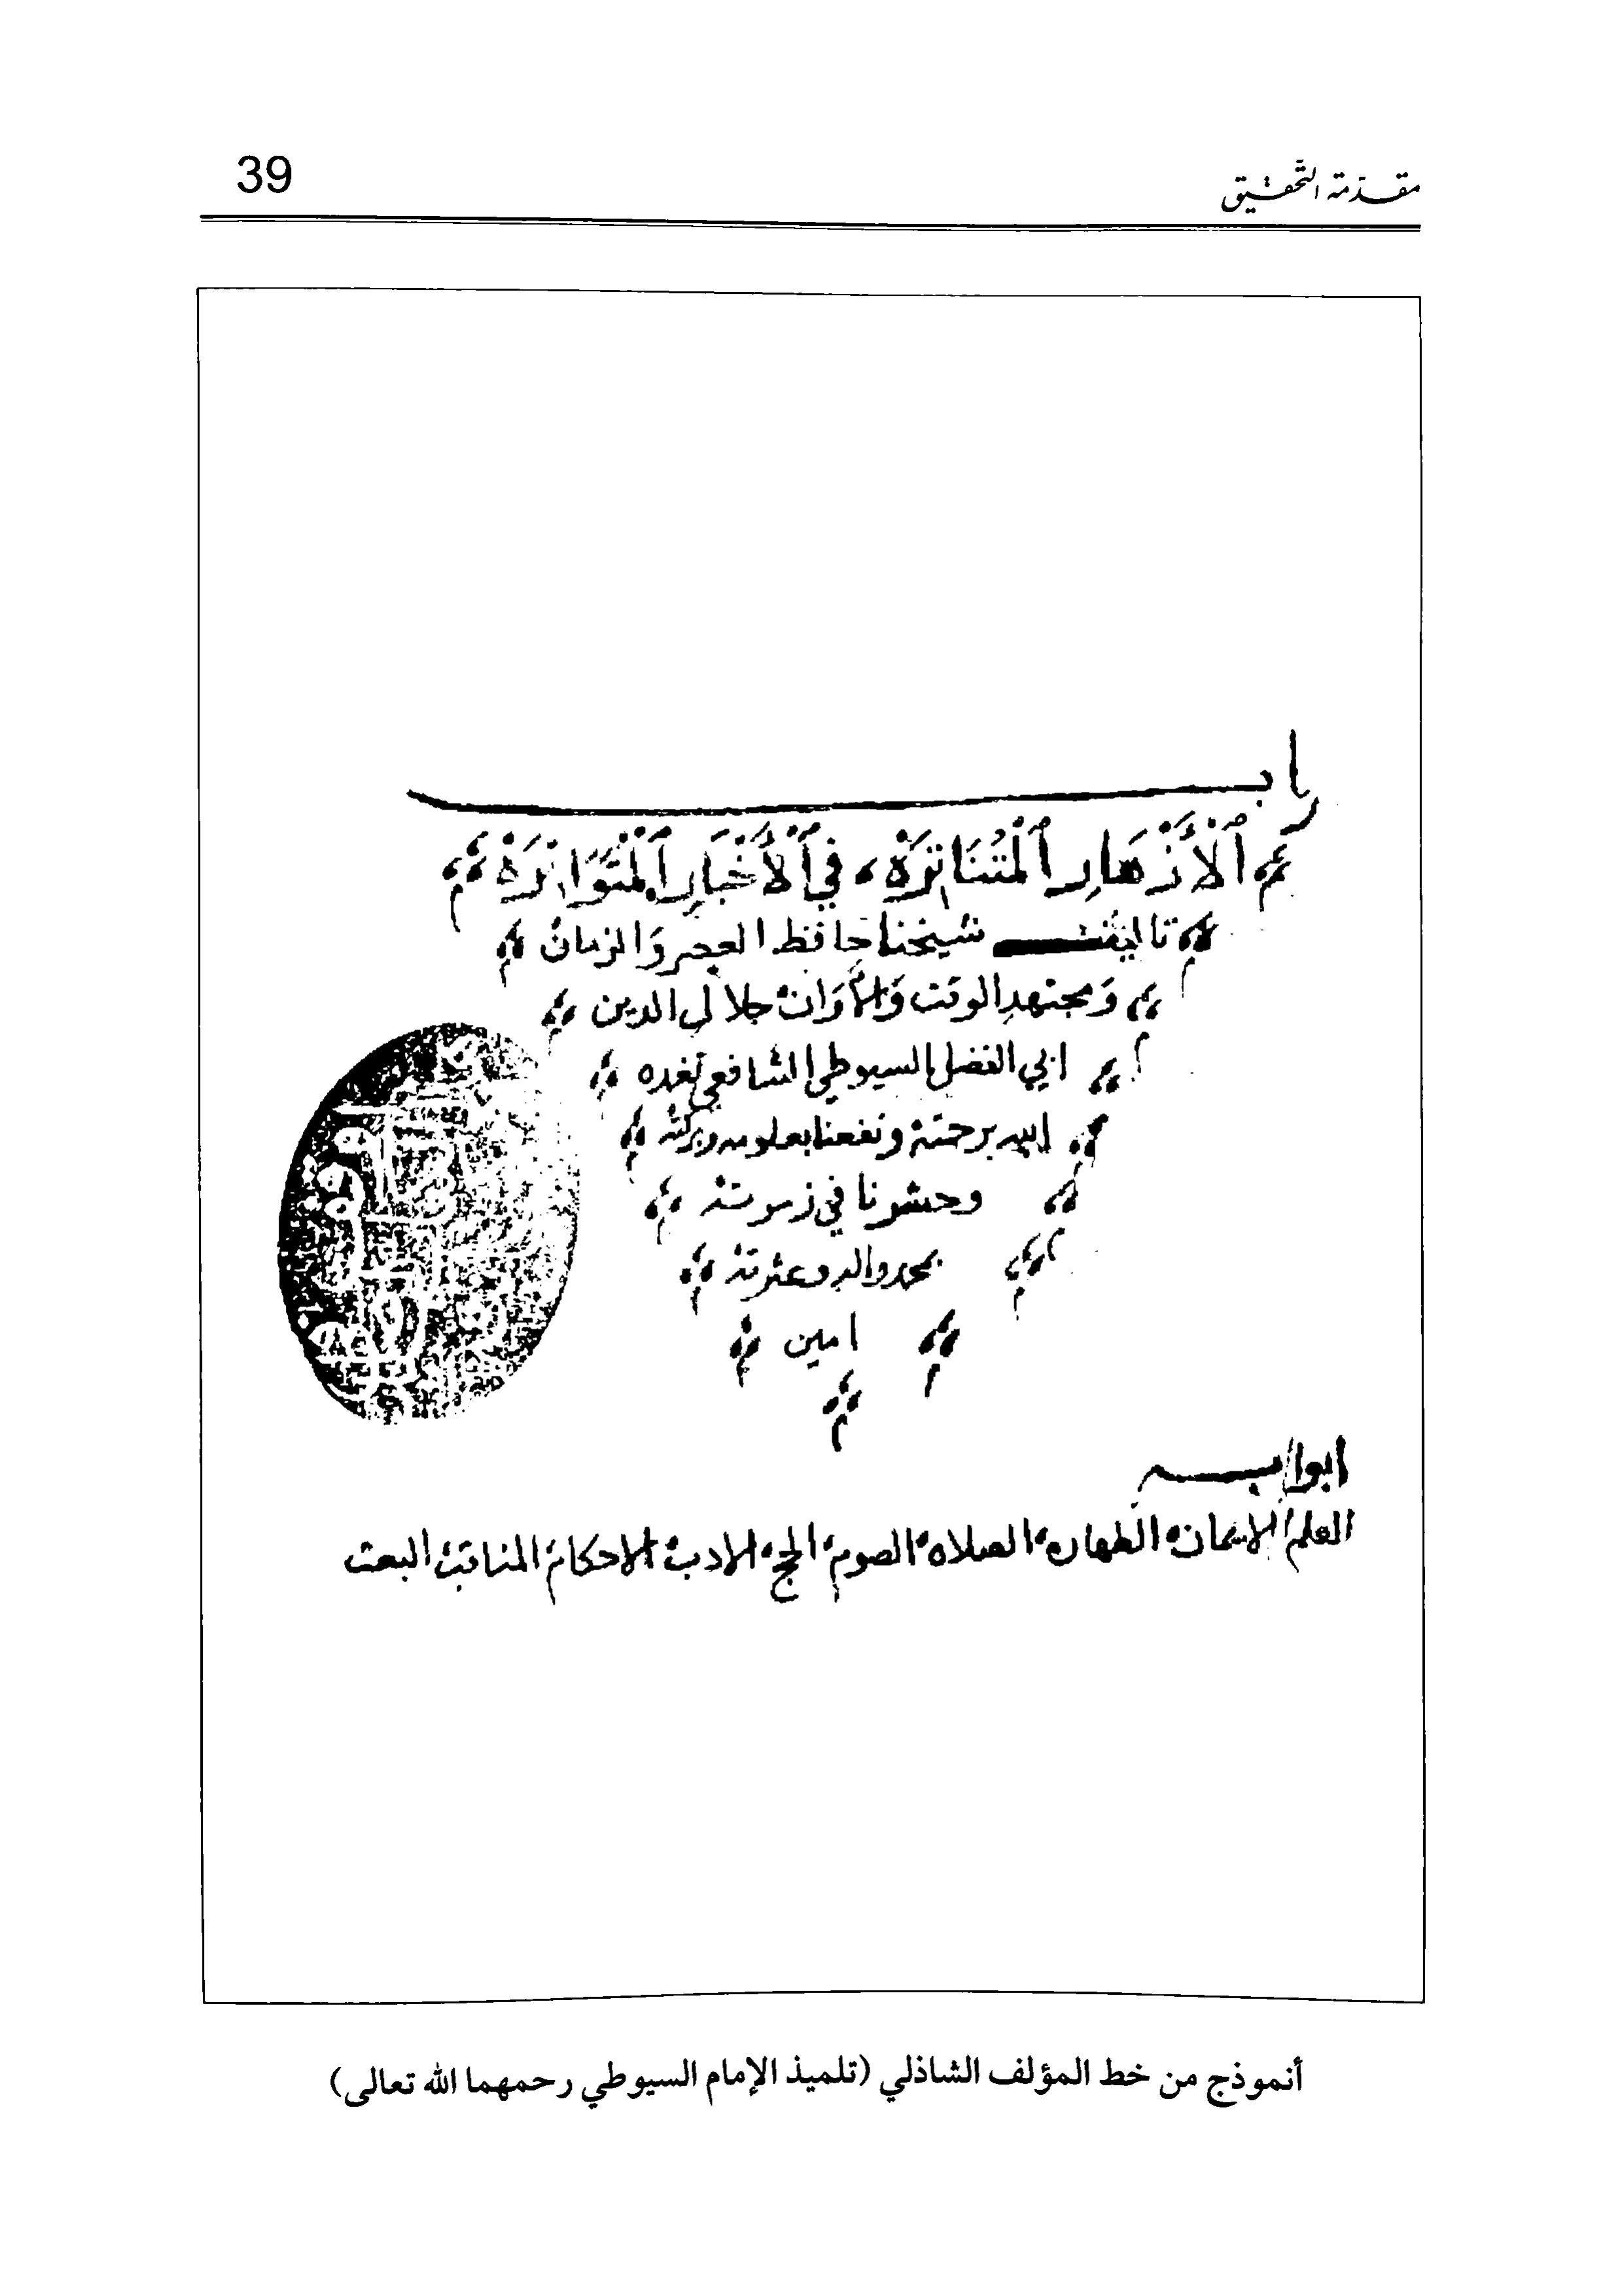 مقدمة التحقيق
39
الْأَزْهَارِ الْمُتَنَاثِرَة في الْأَخْبَارِ الْمُتَوَاتِرَة
تاليف شيخنا حافظ العصر والزمان
ومجتهد الوقت والأوان جلال الدين
ابي الفضل السيوطي الشافعي تغمده
الله برحمته ونفعنا بعلومه وبركته
وحشرنا في زمرته
بمحمد واله وعترته
امين
ابواب
العلم الايمان الطهاره الصلاه الصوم الحج الادب الاحكام المناقب البعث
أنموذج من خط المؤلف الشاذلي (تلميذ الإمام السيوطي رحمهما الله تعالى)